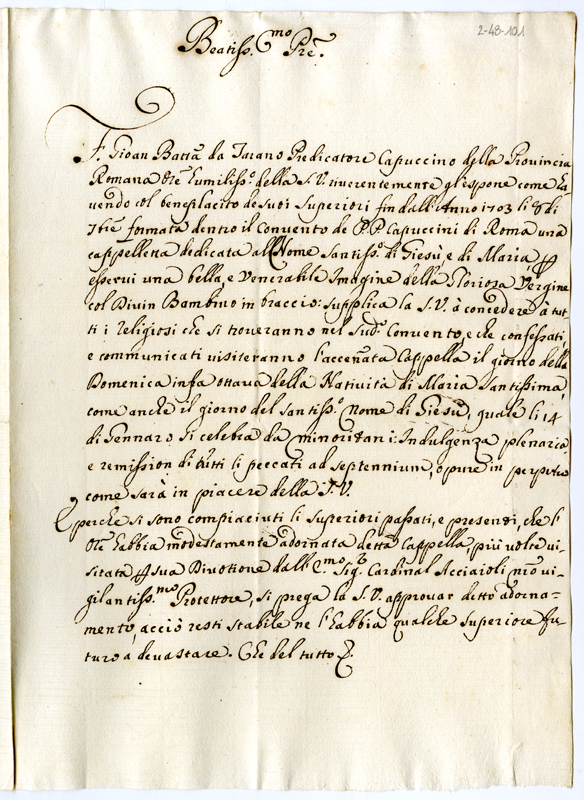 2-48-101
Beatiss.mo Pre.
F. Gioan Batta da Tarano Predicatore Capuccino della Provincia
Romana Ore humiliss.o della S.V. riverentemente gl'espone come ha=
vendo col beneplacito de suoi Superiori fin dall'Anno 1703 li 8 di
7bre formata dentro il Convento de PP. Capuccini di Roma una
cappelletta dedicata all Nome Santiss.o di Giesù, e di Maria p
esservi una bella, e Venerabile Imagine della Gloriosa Vergine
col Divin Bambino in braccio: supplica la S.V. à concedere à tut
ti i religiosi che si troveranno nel sud.o Convento, e che confessati,
e communicati visiteranno l'accenata Cappella il giorno della
Domenica infra ottava della Natività di Maria Santissima,
come anche il giorno del Santiss.o Nome di Giesù, quale li 14
di Gennaro si celebra da minoritani: Indulgenza plenaria,
e remission di tutti li peccati ad septennium, o pure in perpetuo
come sarà in piacere della S.V.
E perche si sono compiaciuti li Superiori passati, e presenti, che l'
Ore habbia modestamente adornata detta Cappella, più volte vi-
sitata p sua Divotione dall' E.mo Sig.r Cardinal Acciaioli nro vi-
gilantiss.mo Protettore, si prega la S.V. approvar detto adorna=
mento, acciò resti stabile ne l'habbia qualche superiore fu-
turo a devastare. Che del tutto &.